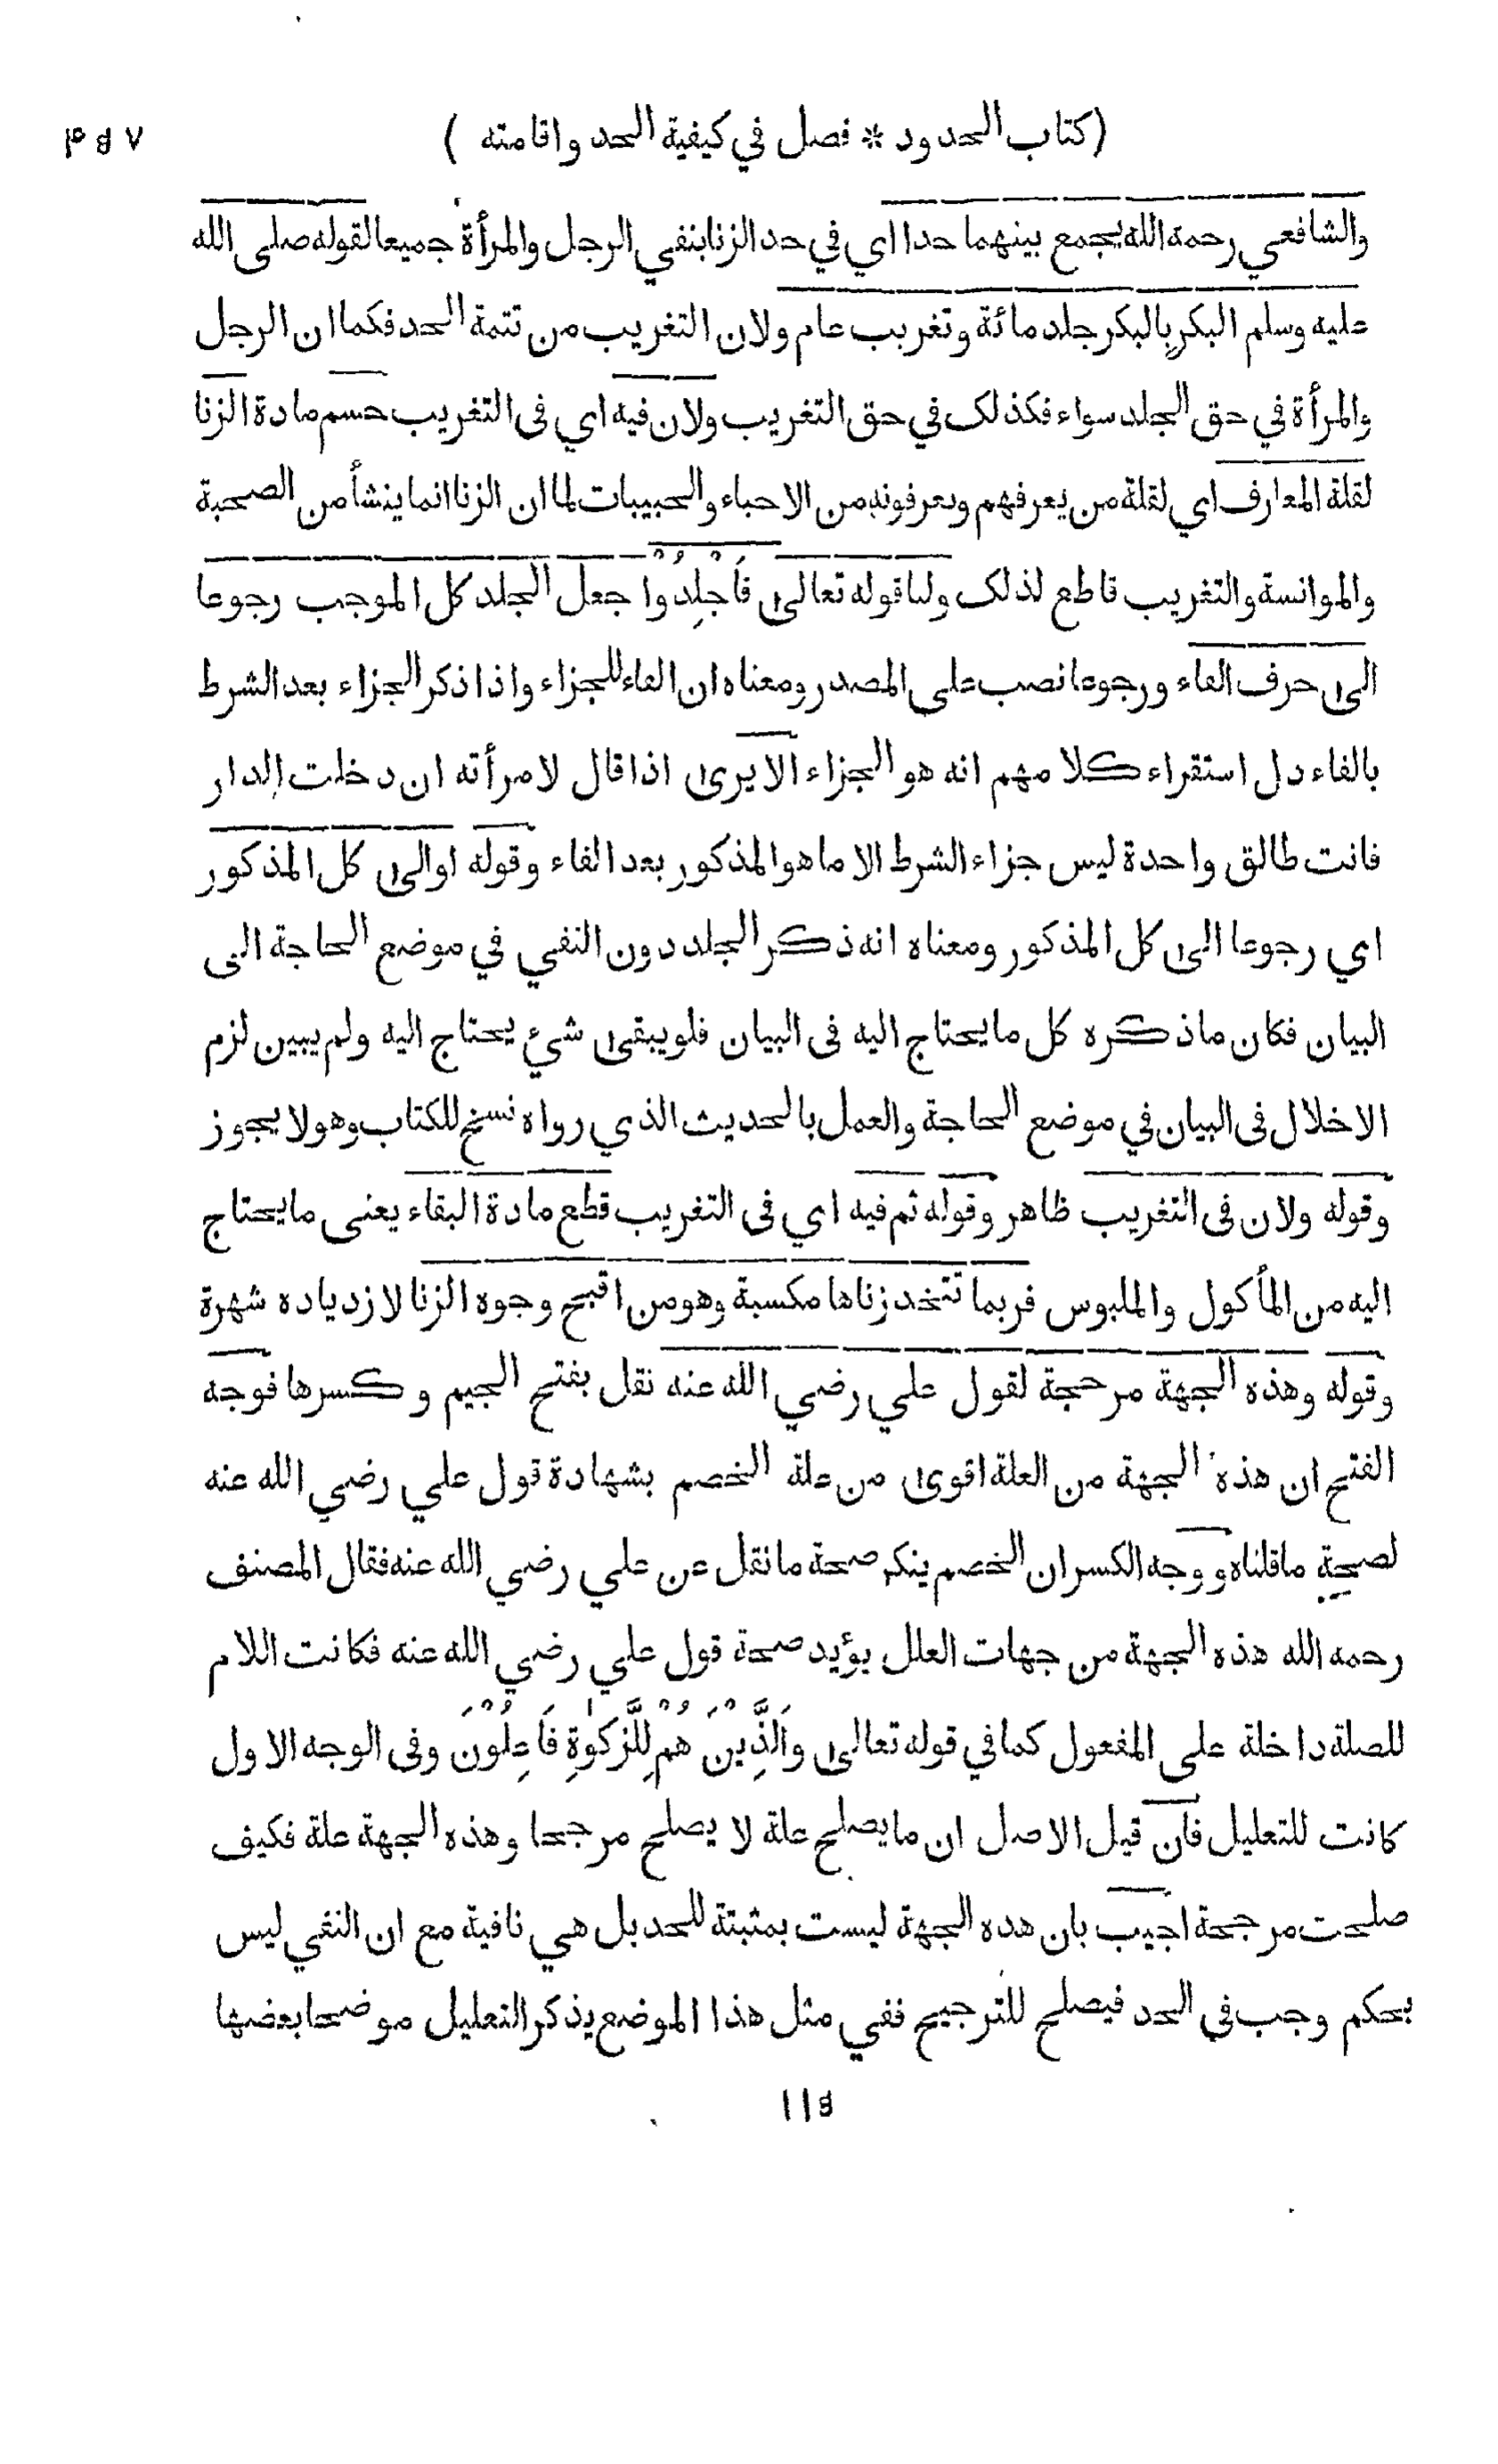 (كتاب الحدود * فصل في كيفية الحد واقامته )
والشافعي رحمه الله يجمع بينهما حدا اي في حد الزنا بنفي الرجل والمرأة جميعا لقوله صلى الله
عليه وسلم البكر بالبكر جلد مائة وتغريب عام ولان التغريب من تتمة الحد فكما ان الرجل
والمرأة في حق الجلد سواء فكذلك في حق التغريب ولان فيه اي فى التغريب حسم مادة الزنا
لقلة المعارف اي لقلة من يعرفهم ويعرفونه من الاحباء والحبيبات لما ان الزنا انما ينشأ من الصحبة
والموانسة والتغريب قاطع لذلك ولنا قوله تعالى فَاجْلِدُوْا جعل الجلد كل الموجب رجوعا
الى حرف الفاء ورجوعا نصب على المصدر ومعناه ان الفاء للجزاء واذا ذكر الجزاء بعد الشرط
بالفاء دل استقراء كلامهم انه هو الجزاء الا يرى اذا قال لامرأته ان دخلت الدار
فانت طالق واحدة ليس جزاء الشرط الا ما هو المذكور بعد الفاء وقوله او الى كل المذكور
اي رجوعا الى كل المذكور ومعناه انه ذكر الجلد دون النفي في موضع الحاجة الى
البيان فكان ما ذكره كل ما يحتاج اليه فى البيان فلو يبقى شيء يحتاج اليه ولم يبين لزم
الاخلال فى البيان في موضع الحاجة والعمل بالحديث الذي رواه نسخ للكتاب وهو لا يجوز
وقوله ولان فى التغريب ظاهر وقوله ثم فيه اي فى التغريب قطع مادة البقاء يعنى ما يحتاج
اليه من المأكول والملبوس فربما تتخذ زناها مكسبة وهو من اقبح وجوه الزنا لازدياده شهرة
وقوله وهذه الجهة مرجحة لقول علي رضي الله عنه نقل بفتح الجيم وكسرها فوجه
الفتح ان هذه الجهة من العلة اقوى من علة الخصم بشهادة قول علي رضي الله عنه
لصحة ما قلناه ووجه الكسر ان الخصم ينكر صحة ما نقل عن علي رضي الله عنه فقال المصنف
رحمه الله هذه الجهة من جهات العلل يؤيد صحة قول علي رضي الله عنه فكانت اللام
للصلة داخلة على المفعول كما في قوله تعالى وَالَّذِيْنَ هُمْ لِلَّزكٰوةِ فَاعِلُوْنَ وفى الوجه الاول
كانت للتعليل فان قيل الاصل ان ما يصلح علة لا يصلح مرجحا وهذه الجهة علة فكيف
صلحت مرجحة اجيب بان هذه الجهة ليست بمثبتة للحد بل هي نافية مع ان النفي ليس
بحكم وجب فى الحد فيصلح للترجيح ففي مثل هذا الموضع يذكر التعليل موضحا بعضها